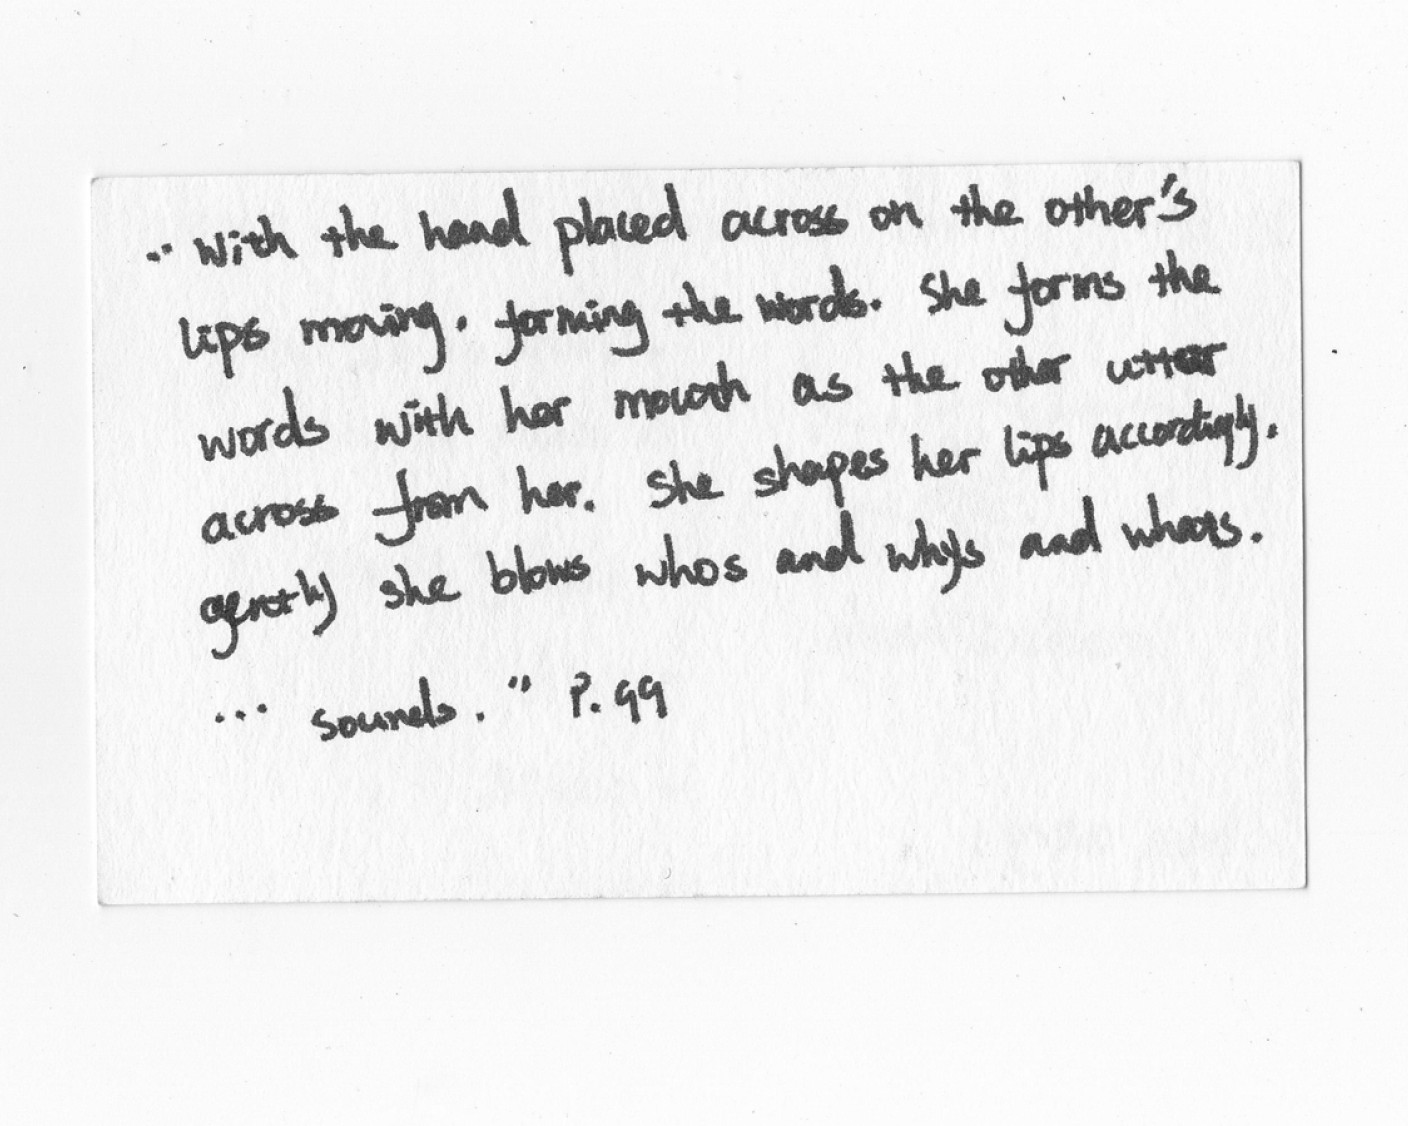 " With the hand placed across on the other's
lips moving. forming the words. She forms the
words with her mouth as the other utter
across from her. She shapes her lips accordingly.
gently she blows whos and whys and whats.
... sounds. " P. 99